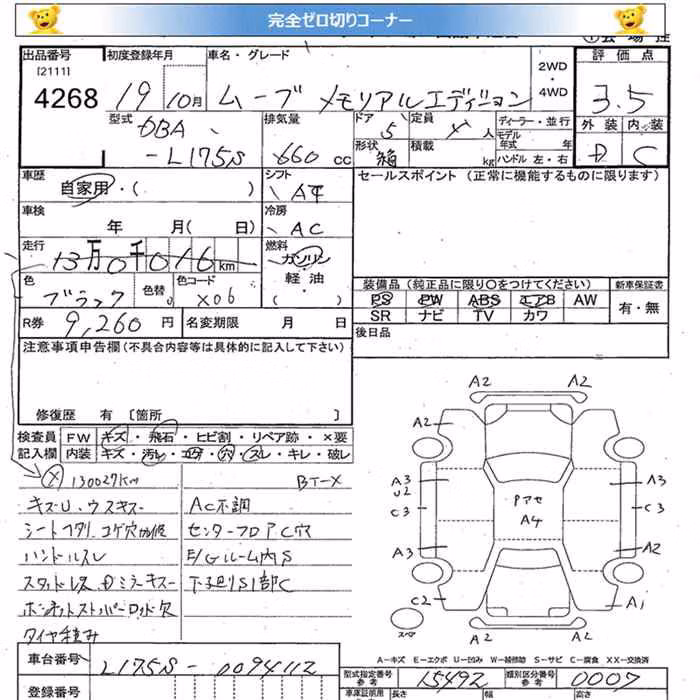 完全ゼロ切りコーナー
出品番号 初度登録年月 車名・グレード 2WD・4WD 評価点
[2111]
4268 19 10月 ムーブ メモリアルエディション 3.5
型式 DBA-L175S 排気量 660 cc ドア 5 定員 人 ディーラー・並行 外装 D 内装 C
形状 箱 積載 kg モデル年式 年 ハンドル 左・右
車歴 自家用・( ) シフト AT セールスポイント (正常に機能するものに限ります)
車検 年 月( 日) 冷房 AC
走行 13万0千016km 燃料 ガソリン・軽油 ( )
色 ブラック 色替 色コード X06
装備品 (純正品に限り○をつけてください) 新車保証書
PS PW ABS エアB AW 有・無
SR ナビ TV カワ
R券 9,260円 名変期限 月 日
後日品
注意事項申告欄(不具合内容等は具体的に記入して下さい)
修復歴 有 [箇所 ]
検査員記入欄 FW キズ・飛石・ヒビ割・リペア跡・×要
内装 キズ・汚レ・コゲ・穴・スレ・キレ・破レ
130027Km
キズU、ウスキズ AC不調
センターフロアC穴
ハンドルスレ E/Gルーム内S
下廻りS1部C
タイヤ積み
A2 A2
A2
A3 U2 A3
C3 Pアせ A4 C3
A3 A2
C2 A1
A2 A2
スペア
A-キズ E-エクボ U-凹み W-補修跡 S-サビ C-腐食 XX-交換済
車台番号 L175S-0094112 型式指定番号 参考 15492 類別区分番号 参考 0007
登録番号 長さ 幅 高さ